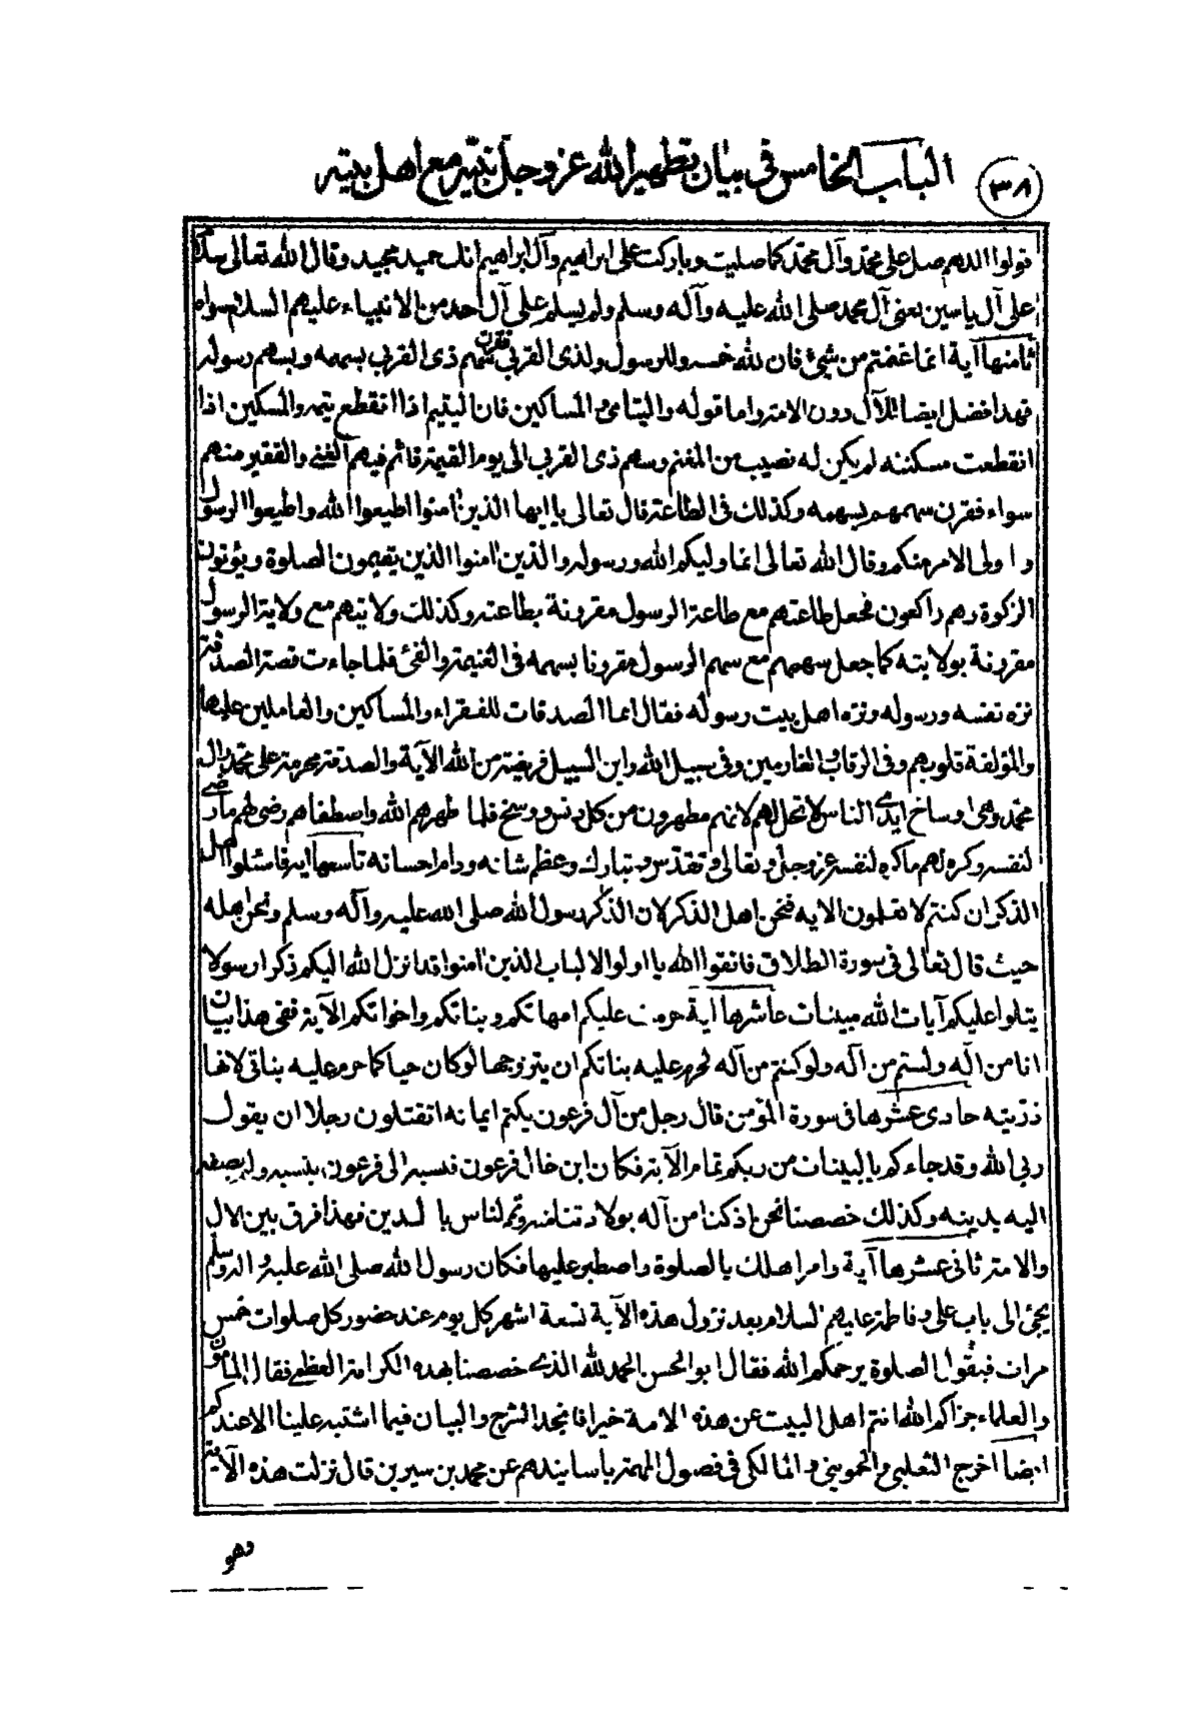 الباب الخامس في بيان تطهير الله عز وجل نبيه مع اهل بيته
٣٨
قولوا اللهم صل على محمد وآل محمد كما صليت وباركت على ابراهيم وآل ابراهيم انك حميد مجيد وقال الله تعالى سلام
على آل ياسين يعنى آل محمد صلى الله عليه وآله وسلم ولم يسلم على آل احد من الانبياء عليهم السلام سواه
ثامنها آية انما غنمتم من شئ فان لله خمسه وللرسول ولذى القربى فقرن سهم ذى القربى بسهمه وبسهم رسوله
فهذا فضل ايضا للآل دون الامة واما قوله واليتامى والمساكين فان اليتيم اذا انقطع يتمه والمسكين اذا
انقطعت مسكنته لم يكن له نصيب من المغنم وسهم ذى القربى الى يوم القيمة قائم فيهم الغنى والفقير منهم
سواء فقرن سهمهم بسهمه وكذلك فى الطاعة قال تعالى يا ايها الذين امنوا اطيعوا الله واطيعوا الرسول
واولى الامر منكم وقال الله تعالى انما وليكم الله ورسوله والذين امنوا الذين يقيمون الصلوة ويؤتون
الزكوة وهم راكعون فجعل طاعتهم مع طاعة الرسول مقرونة بطاعته وكذلك ولايتهم مع ولاية الرسول
مقرونة بولايته كما جعل سهمهم مع سهم الرسول مقرونا بسهمه فى الغنيمة والفئ فلما جاءت قصة الصدقة
نزه نفسه ورسوله ونزه اهل بيت رسوله فقال انما الصدقات للفقراء والمساكين والعاملين عليها
والمؤلفة قلوبهم وفى الرقاب والغارمين وفى سبيل الله وابن السبيل فريضة من الله الآية والصدقة محرمة على محمد وآل
محمد وهى اوساخ ايدى الناس لا تحل لهم لانهم مطهرون من كل دنس ووسخ فلما طهرهم الله واصطفاهم رضى لهم ما رضى
لنفسه وكره لهم ما كره لنفسه عز وجل وتعالى وتقدس وتبارك وعظم شانه ودام احسانه تاسعها اية فاسئلوا اهل
الذكر ان كنتم لا تعلمون الايه فنحن اهل الذكر لان الذكر رسول الله صلى الله عليه وآله وسلم ونحن اهله
حيث قال تعالى فى سورة الطلاق فاتقوا الله يا اولو الالباب الذين امنوا قد انزل الله اليكم ذكرا رسولا
يتلوا عليكم آيات الله مبينات عاشرها اية حرمت عليكم امهاتكم وبناتكم واخواتكم الآية ففى هذا بيان
انا من اله ولستم من آله ولو كنتم من آله لحرم عليه بناتكم ان يتزوجها لو كان حيا كما حرم عليه بناتى لانها
ذريته حادى عشرها فى سورة المؤمن قال رجل من آل فرعون يكتم ايمانه اتقتلون رجلا ان يقول
ربى الله وقد جاءكم بالبينات من ربكم تمام الآية فكان ابن خال فرعون فنسبه الى فرعون بنسبه ولم يضفه
اليه بدينه وكذلك خصصنا نحن اذ كنا من آله بولادتنا منه وتم لناس بالدين فهذا فرق بين الال
والامة ثانى عشرها آية وامر اهلك بالصلوة واصطبر عليها فكان رسول الله صلى الله عليه واله وسلم
يجئ الى باب على وفاطمة عليهم السلام بعد نزول هذه الآية تسعة اشهر كل يوم عند حضور كل صلوات خمس
مرات فيقول الصلوة يرحمكم الله فقال ابو الحسن الحمد لله الذى خصصنا بهذه الكرامة العظمى فقال المامون
والعلماء جزاكم الله انتم اهل البيت عن هذه الامة خيرا فما نجد الشرح والبيان فيما اشتبه علينا الا عندكم
ايضا اخرج الثعلبى والحموينى والمالكى فى فصول المهمة باسانيدهم عن محمد بن سيرين قال نزلت هذه الآية
وهو